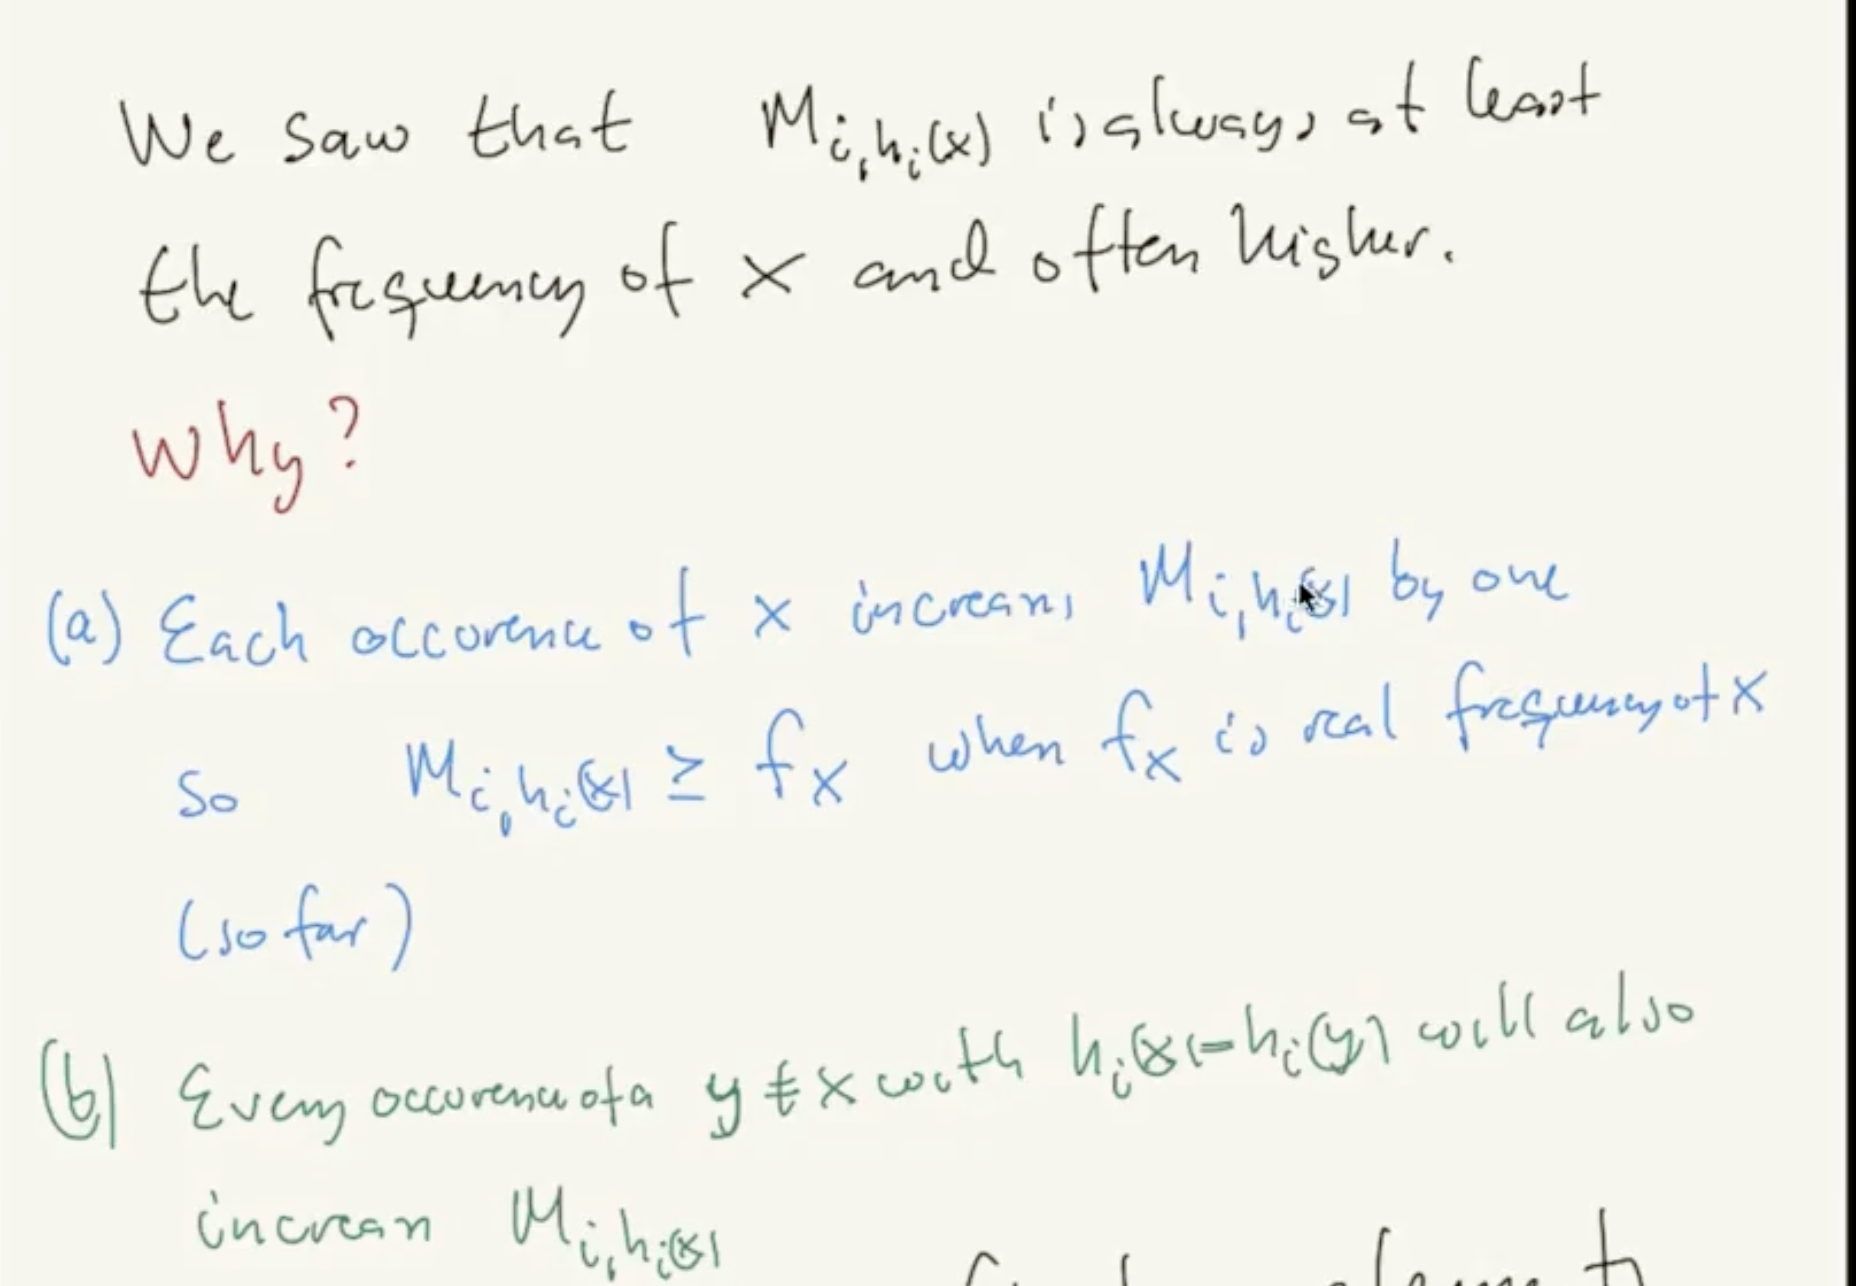 We saw that M_{i,h_i(x)} is always at least
the frequency of x and often higher.
Why?
(a) Each occurence of x increases M_{i,h_i(x)} by one
so M_{i,h_i(x)} ≥ f_x when f_x is real frequency of x
(so far)
(b) Every occurence of a y ≠ x with h_i(x) = h_i(y) will also
increase M_{i,h_i(x)}